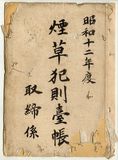 昭和十二年度
煙草犯則臺帳
取締係